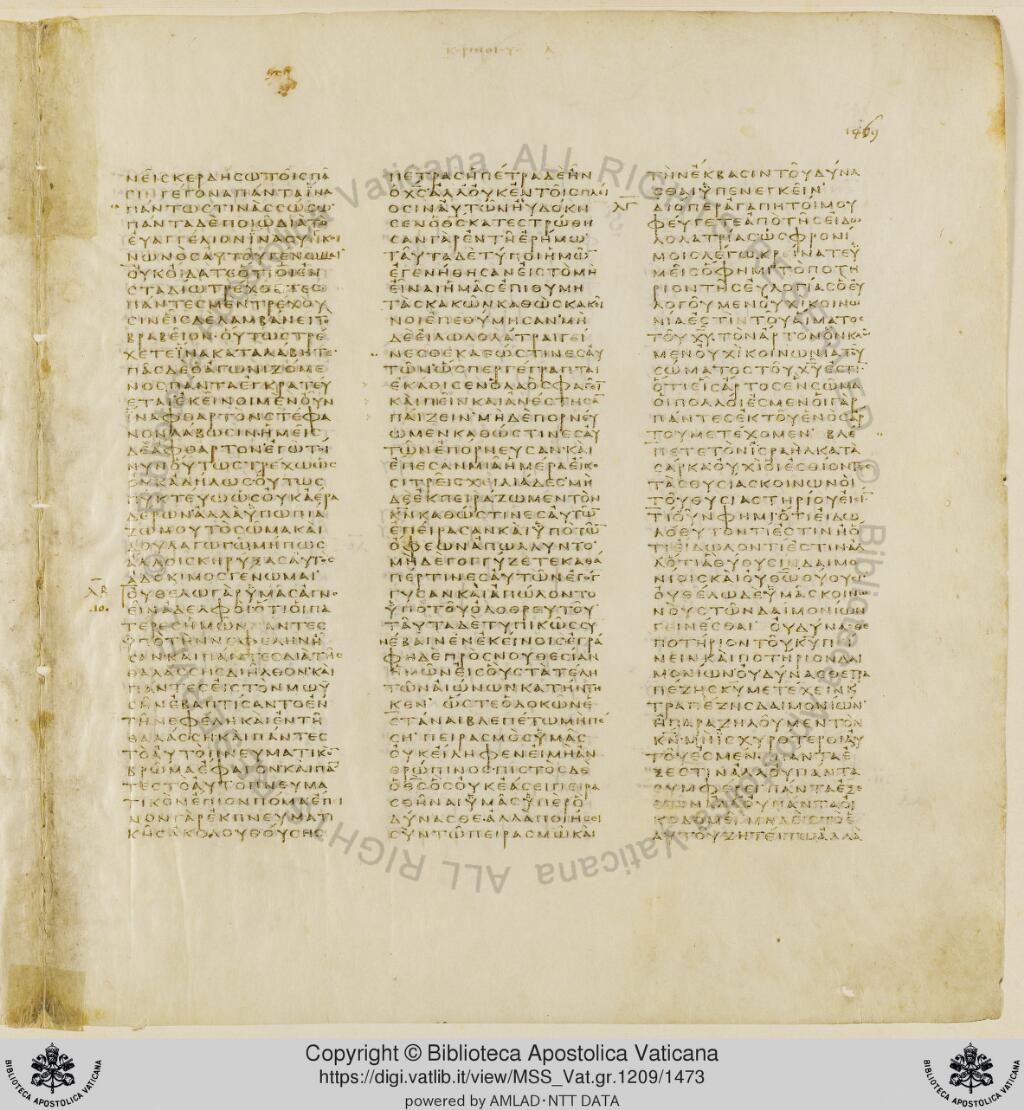 Κ·ΡΙΝΘΙ·Υ· Α
1469
ΝΕΙϹΚΕΡΔΗϹΩΤΟΙϹΠΑ̅
ϹΙΓΕΓΟΝΑΠΑΝΤΑΪΝΑ
ΠΑΝΤΩϹΤΙΝΑϹϹΩϹΩ
ΠΑΝΤΑΔΕΠΟΙΩΔΙΑΤΟ
ΕΥΑΓΓΕΛΙΟΝΪΝΑϹΥΝΚΟΙ
ΝΩΝΟϹΑΥΤΟΥΓΕΝΩΜΑΙ
ΟΥΚΟΙΔΑΤΕΟΤΙΟΙΕΝ
ϹΤΑΔΙΩΤΡΕΧΟΝΤΕϹ
ΠΑΝΤΕϹΜΕΝΤΡΕΧΟΥ
ϹΙΝΕΙϹΔΕΛΑΜΒΑΝΕΙΤΟ
ΒΡΑΒΕΙΟΝ·ΟΥΤΩϹΤΡΕ
ΧΕΤΕΪΝΑΚΑΤΑΛΑΒΗΤΕ·
ΠΑϹΔΕΟΑΓΩΝΙΖΟΜΕ
ΝΟϹΠΑΝΤΑΕΓΚΡΑΤΕΥ
ΕΤΑΙΕΚΕΙΝΟΙΜΕΝΟΥΝ
ΪΝΑΦΘΑΡΤΟΝϹΤΕΦΑ
ΝΟΝΛΑΒΩϹΙΝΗΜΕΙϹ
ΔΕΑΦΘΑΡΤΟΝΕΓΩΤΟΙ
ΝΥΝΟΥΤΩϹΤΡΕΧΩΩϹ
ΟΥΚΑΔΗΛΩϹΟΥΤΩϹ
ΠΥΚΤΕΥΩΩϹΟΥΚΑΕΡΑ
ΔΕΡΩΝΑΛΛΑΫΠΩΠΙΑ
ΖΩΜΟΥΤΟϹΩΜΑΚΑΙ
ΔΟΥΛΑΓΩΓΩΜΗΠΩϹ
ΑΛΛΟΙϹΚΗΡΥΞΑϹΑΥΤΟϹ
ΑΔΟΚΙΜΟϹΓΕΝΩΜΑΙ
ΛΒ ΟΥΘΕΛΩΓΑΡΫΜΑϹΑΓΝΟ
·ΙΟ· ΕΙΝΑΔΕΛΦΟΙΟΤΙΟΙΠΑ
ΤΕΡΕϹΗΜΩΝΠΑΝΤΕϹ
ΫΠΟΤΗΝΝΕΦΕΛΗΝΗ
ϹΑΝΚΑΙΠΑΝΤΕϹΔΙΑΤΗϹ
ΘΑΛΑϹϹΗϹΔΙΗΛΘΟΝΚΑΙ
ΠΑΝΤΕϹΕΙϹΤΟΝΜΩΫ
ϹΗΝΕΒΑΠΤΙϹΑΝΤΟΕΝ
ΤΗΝΕΦΕΛΗΚΑΙΕΝΤΗ
ΘΑΛΑϹϹΗΚΑΙΠΑΝΤΕϹ
ΤΟΑΥΤΟΠΝΕΥΜΑΤΙΚΟ̅
ΒΡΩΜΑΕΦΑΓΟΝΚΑΙΠΑ̅
ΤΕϹΤΟΑΥΤΟΠΝΕΥΜΑ
ΤΙΚΟΝΕΠΙΟΝΠΟΜΑΕΠΙ
ΝΟΝΓΑΡΕΚΠΝΕΥΜΑΤΙ
ΚΗϹΑΚΟΛΟΥΘΟΥϹΗϹ
ΠΕΤΡΑϹΗΠΕΤΡΑΔΕΗΝ
ΟΧ̅Ϲ̅ΑΛΛΟΥΚΕΝΤΟΙϹΠΛΕΙ
ΟϹΙΝΑΥΤΩΝΗΥΔΟΚΗ
ϹΕΝΟΘ̅Ϲ̅ΚΑΤΕϹΤΡΩΘΗ
ϹΑΝΓΑΡΕΝΤΗΕΡΗΜΩ
ΤΑΥΤΑΔΕΤΥΠΟΙΗΜΩ̅
ΕΓΕΝΗΘΗϹΑΝΕΙϹΤΟΜΗ
ΕΙΝΑΙΗΜΑϹΕΠΙΘΥΜΗ
ΤΑϹΚΑΚΩΝΚΑΘΩϹΚΑΚΕΙ
ΝΟΙΕΠΕΘΥΜΗϹΑΝ·ΜΗ
ΔΕΕΙΔΩΛΟΛΑΤΡΑΙΓΕΙ
ΝΕϹΘΕΚΑΘΩϹΤΙΝΕϹΑΥ
ΤΩΝ·ΩϹΠΕΡΓΕΓΡΑΠΤΑΙ
ΕΚΑΘΙϹΕΝΟΛΑΟϹΦΑΓΕΙ̅
ΚΑΙΠΕΙΝΚΑΙΑΝΕϹΤΗϹΑ̅
ΠΑΙΖΕΙΝ·ΜΗΔΕΠΟΡΝΕΥ
ΩΜΕΝΚΑΘΩϹΤΙΝΕϹΑΥ
ΤΩΝΕΠΟΡΝΕΥϹΑΝ·ΚΑΙ
ΕΠΕϹΑΝΜΙΑΗΜΕΡΑΕΙΚΟ
ϹΙΤΡΕΙϹΧΕΙΛΙΑΔΕϹ·ΜΗ
ΔΕΕΚΠΕΙΡΑΖΩΜΕΝΤΟΝ
Κ̅Ν̅ΚΑΘΩϹΤΙΝΕϹΑΥΤΩ̅
ΕΠΕΙΡΑϹΑΝΚΑΙΫΠΟΤΩ̅
ΟΦΕΩΝΑΠΩΛΛΥΝΤΟ·
ΜΗΔΕΓΟΓΓΥΖΕΤΕΚΑΘΑ
ΠΕΡΤΙΝΕϹΑΥΤΩΝΕΓΟΓ
ΓΥϹΑΝΚΑΙΑΠΩΛΟΝΤΟ
ΫΠΟΤΟΥΟΛΟΘΡΕΥΤΟΥ·
ΤΑΥΤΑΔΕΤΥΠΙΚΩϹϹΥ
ΝΕΒΑΙΝΕΝΕΚΕΙΝΟΙϹΕΓΡΑ
ΦΗΔΕΠΡΟϹΝΟΥΘΕϹΙΑΝ
ΗΜΩΝΕΙϹΟΥϹΤΑΤΕΛΗ
ΤΩΝΑΙΩΝΩΝΚΑΤΗΝΤΗ
ΚΕΝ· ΩϹΤΕΟΔΟΚΩΝΕ
ϹΤΑΝΑΙΒΛΕΠΕΤΩΜΗΠΕ
ϹΗ· ΠΕΙΡΑϹΜΟϹΫΜΑϹ
ΟΥΚΕΙΛΗΦΕΝΕΙΜΗΑΝ
ΘΡΩΠΙΝΟϹ·ΠΙϹΤΟϹΔΕ
ΟΘ̅Ϲ̅ΟϹΟΥΚΕΑϹΕΙΠΕΙΡΑ
ϹΘΗΝΑΙΫΜΑϹΫΠΕΡΟ
ΔΥΝΑϹΘΕ·ΑΛΛΑΠΟΙΗϹΕΙ
ϹΥΝΤΩΠΕΙΡΑϹΜΩΚΑΙ
ΤΗΝΕΚΒΑϹΙΝΤΟΥΔΥΝΑ
ϹΘΑΙΫΠΕΝΕΓΚΕΙΝ·
ΛΓ ΔΙΟΠΕΡΑΓΑΠΗΤΟΙΜΟΥ
ΦΕΥΓΕΤΕΑΠΟΤΗϹΕΙΔΩ
ΛΟΛΑΤΡΙΑϹΩϹΦΡΟΝΙ
ΜΟΙϹΛΕΓΩ·ΚΡΙΝΑΤΕΫ
ΜΕΙϹΟΦΗΜΙΤΟΠΟΤΗ
ΡΙΟΝΤΗϹΕΥΛΟΓΙΑϹΟΕΥ
ΛΟΓΟΥΜΕΝΟΥΧΙΚΟΙΝΩ
ΝΙΑΕϹΤΙΝΤΟΥΑΙΜΑΤΟϹ
ΤΟΥΧ̅Υ̅·ΤΟΝΑΡΤΟΝΟΝΚΛΩ
ΜΕΝΟΥΧΙΚΟΙΝΩΝΙΑΤΟΥ
ϹΩΜΑΤΟϹΤΟΥΧ̅Υ̅ΕϹΤΙ̅·
ΟΤΙΕΙϹΑΡΤΟϹΕΝϹΩΜΑ
ΟΙΠΟΛΛΟΙΕϹΜΕΝΟΙΓΑΡ
ΠΑΝΤΕϹΕΚΤΟΥΕΝΟϹΑΡ
ΤΟΥΜΕΤΕΧΟΜΕΝ· ΒΛΕ
ΠΕΤΕΤΟΝΙϹΡΑΗΛΚΑΤΑ
ϹΑΡΚΑΟΥΧΙΟΙΕϹΘΙΟΝΤΕϹ
ΤΑϹΘΥϹΙΑϹΚΟΙΝΩΝΟΙ
ΤΟΥΘΥϹΙΑϹΤΗΡΙΟΥΕΙϹΙ̅
ΤΙΟΥΝΦΗΜΙ·ΟΤΙΕΙΔΩ
ΛΟΘΥΤΟΝΤΙΕϹΤΙΝΗΟ
ΤΙΕΙΔΩΛΟΝΤΙΕϹΤΙΝΑΛ
ΛΟΤΙΑΘΥΟΥϹΙΝΔΑΙΜΟ
ΝΙΟΙϹΚΑΙΟΥΘΕΩΘΥΟΥϹΙ̅
ΟΥΘΕΛΩΔΕΫΜΑϹΚΟΙΝΩ
ΝΟΥϹΤΩΝΔΑΙΜΟΝΙΩΝ
ΓΕΙΝΕϹΘΑΙ· ΟΥΔΥΝΑϹΘΕ
ΠΟΤΗΡΙΟΝΤΟΥΚ̅Υ̅ΠΙ
ΝΕΙΝΚΑΙΠΟΤΗΡΙΟΝΔΑΙ
ΜΟΝΙΩΝΟΥΔΥΝΑϹΘΕΤΡΑ
ΠΕΖΗϹΚ̅Υ̅ΜΕΤΕΧΕΙΝΚΑΙ
ΤΡΑΠΕΖΗϹΔΑΙΜΟΝΙΩΝ·
ΗΠΑΡΑΖΗΛΟΥΜΕΝΤΟΝ
Κ̅Ν̅ΜΗΙϹΧΥΡΟΤΕΡΟΙΑΥ
ΤΟΥΕϹΜΕΝ· ΠΑΝΤΑΕ
ΞΕϹΤΙΝΑΛΛΟΥΠΑΝΤΑ
ϹΥΜΦΕΡΕΙΠΑΝΤΑΕΞΕ
ϹΤΙΝΑΛΛΟΥΠΑΝΤΑΟΙ
ΚΟΔΟΜΕΙ·ΜΗΔΕΙϹΤΟΕ
ΑΥΤΟΥΖΗΤΕΙΤΩΑΛΛΑ
Copyright © Biblioteca Apostolica Vaticana
https://digi.vatlib.it/view/MSS_Vat.gr.1209/1473
powered by AMLAD·NTT DATA
BIBLIOTECA APOSTOLICA VATICANA
BIBLIOTECA APOSTOLICA VATICANA